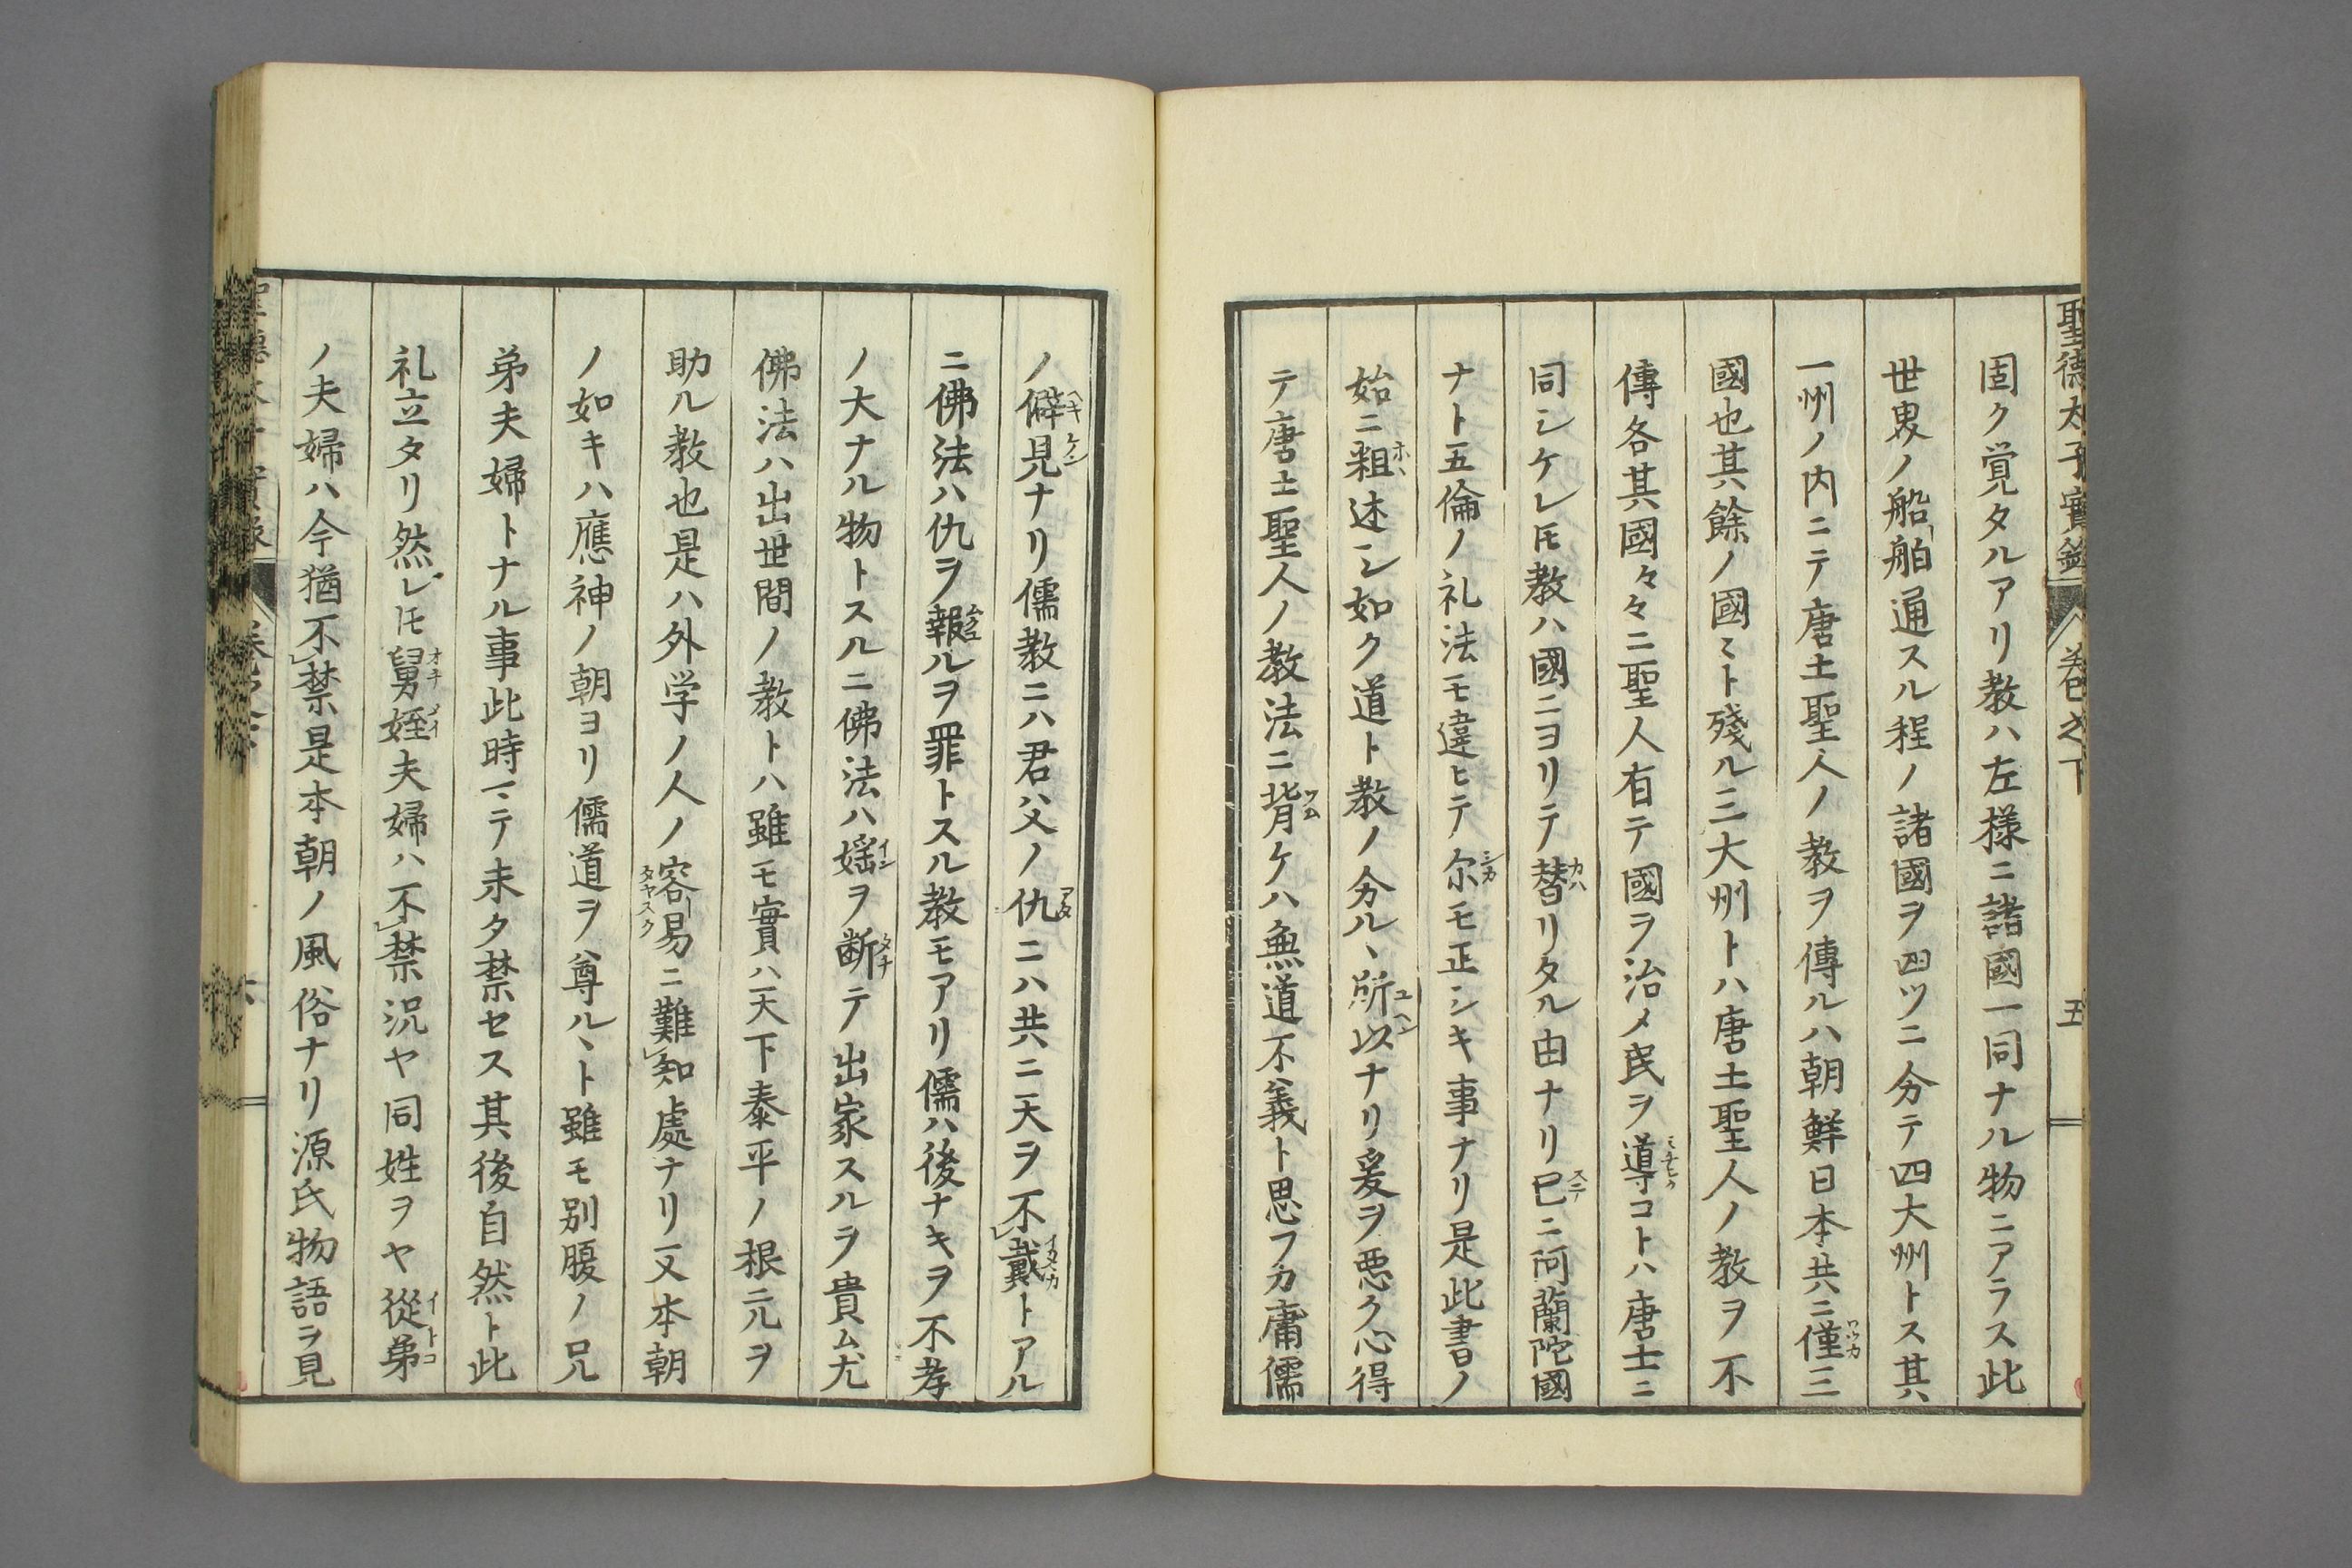 聖德太子實錄 卷之下 五
固ク覚タルアリ教ハ左様ニ諸國一同ナル物ニアラス此
世界ノ船舶通スル程ノ諸國ヲ四ツニ分テ四大州トス其
一州ノ内ニテ唐土聖人ノ教ヲ傳ルハ朝鮮日本共ニ僅三
國也其餘ノ國〻ト殘ル三大州トハ唐土聖人ノ教ヲ不
傳各其國々々ニ聖人有テ國ヲ治メ民ヲ導コトハ唐士ニ
同シケレ𪜈教ハ國ニヨリテ替リタル由ナリ已ニ阿蘭陀國
ナト五倫ノ礼法モ違ヒテ尓モ正シキ事ナリ是此書ノ
始ニ粗述シ如ク道ト教ノ分ル丶所以ナリ爰ヲ悪ク心得
テ唐土聖人ノ教法ニ背ケハ無道不義ト思フカ庸儒
ノ僻見ナリ儒教ニハ君父ノ仇ニハ共ニ天ヲ不戴トアル
ニ佛法ハ仇ヲ報ルヲ罪トスル教モアリ儒ハ後ナキヲ不孝
ノ大ナル物トスルニ佛法ハ婬ヲ断テ出家スルヲ貴ム尤
佛法ハ出世間ノ教トハ雖モ實ハ天下泰平ノ根元ヲ
助ル教也是ハ外学ノ人ノ容易ニ難知處ナリ又本朝
ノ如キハ應神ノ朝ヨリ儒道ヲ尊ル丶ト雖モ別腹ノ兄
弟夫婦トナル事此時マテ未タ禁セス其後自然ト此
礼立タリ然レ𪜈舅姪夫婦ハ不禁況ヤ同姓ヲヤ從弟
ノ夫婦ハ今猶不禁是本朝ノ風俗ナリ源氏物語ヲ見